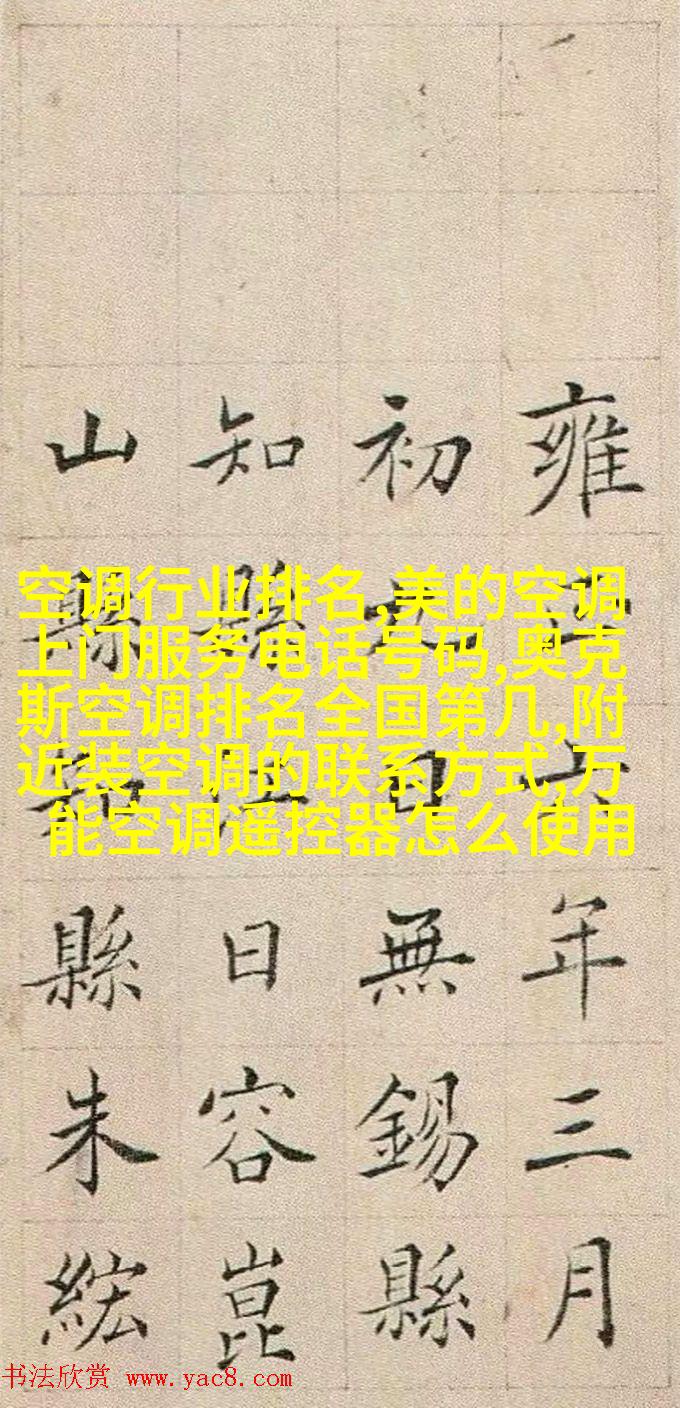 空调行业排名,美的空调
上门服务电话号码,奥克
斯空调排名全国第几,附
近装空调的联系方式,万
能空调遥控器怎么使用
雍正六年三月
初日無錫縣
知縣江日容崑
山縣知縣朱綋
书法欣赏 www.yac8.com